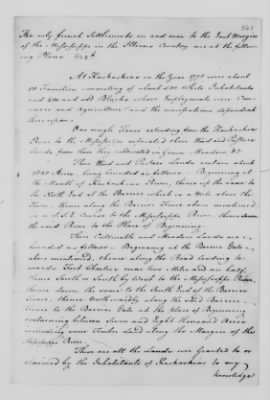 The only french Settlements on and near to the East Margin
of the Mississippi in the Illinois Country are at the follow
ing Places
At Kaskaskias in the Year 1771 were about
80 Families consisting of about 500 White Inhabitants
and 400 and odd Blacks whose Employments were Com
merce and Agriculture and the occupations dependent
thereupon
One single Fence extending from the Kaskaskias
River to the Mississippi seperated their Wood and Pasture
Lands from those they cultivated in Grain Meadows &c
Their Wood and Pasture Lands contain about
Acres being bounded as follows Beginning at
the Mouth of Kaskaskias River, thence up the same to
the North End of the Barrier which is a Mile above the
Town thence along the Barrier Fence above mentioned
in a S.S.E course to the Mississippi River thence down
the said River to the Place of Beginning
Their Cultivable and Meadow Lands are
bounded as follows Beginning at the Barrier Gate
above mentioned, thence along the Road leading to
wards Fort Chartres near two Miles and an half
thence South & South by West to the Mississippi River
thence down the same to the South End of the Barrier
Fence, thence Northwardly along the said Barrier
Fence to the Barrier Gate at the Place of Beginning
containing between Seven and Eight Thousand Acres
including some Timber Land along the Margin of the
Mississippi River
These are all the Lands ever Granted to or
claimed by the Inhabitants of Kaskaskias to my
knowledge